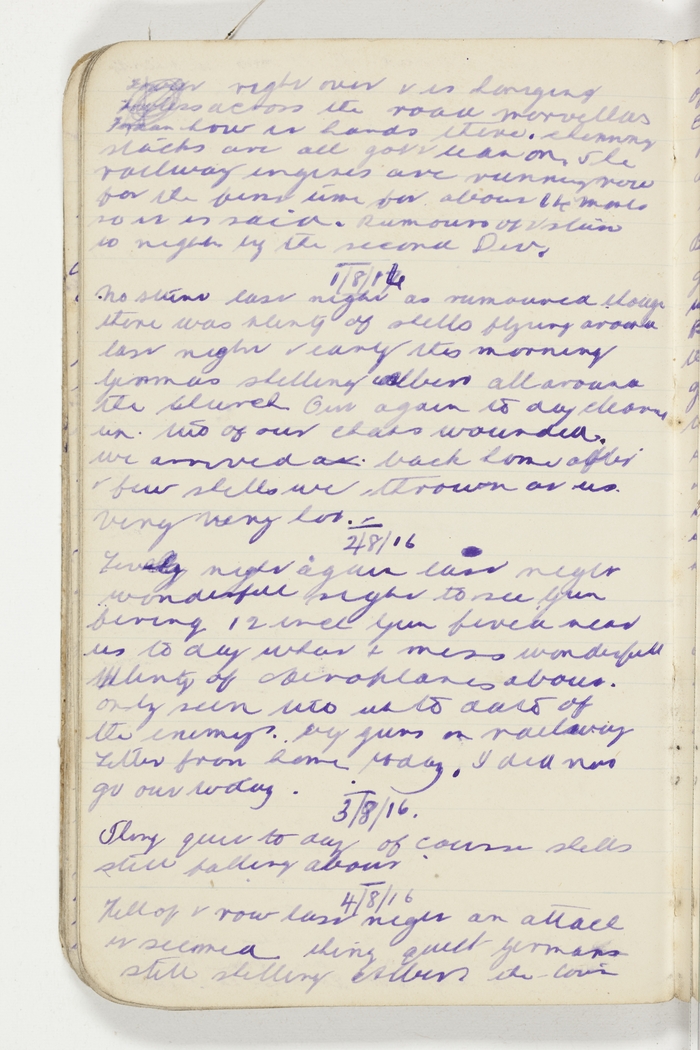 right over & is hanging
across the road marvellas
how it hands there. chimney
stacks are all gone lean on, the
railway engines are running now
for the first time for about 14 months
so it is said. Rumours of Stunt
to night by the second Dev,
1/8/16
No stunt last night as rumoured though
there was plenty of shells flying around
last night & early this morning
Germas shelling Albert all around
the church Out again to day cleaning
up. two of our chaps wounded.
we arrived at back home after
a few shells we thrown at us.
very very hot. -
2/8/16
Lively night again last night
wonderfull sight to see Gun
fireing 12 inch Gun fired near
us to day what a mess wonderfull
Plenty of Aeroplanes about.
only seen two up to date of
the enemys. big guns on railway
Letter from home today, I did not
go out today.
3/8/16.
Thing quiet to day of course shells
still falling about
4/8/16
Hell of a row last night an attack
it seemed thing quiet Germans
still shelling Albert the